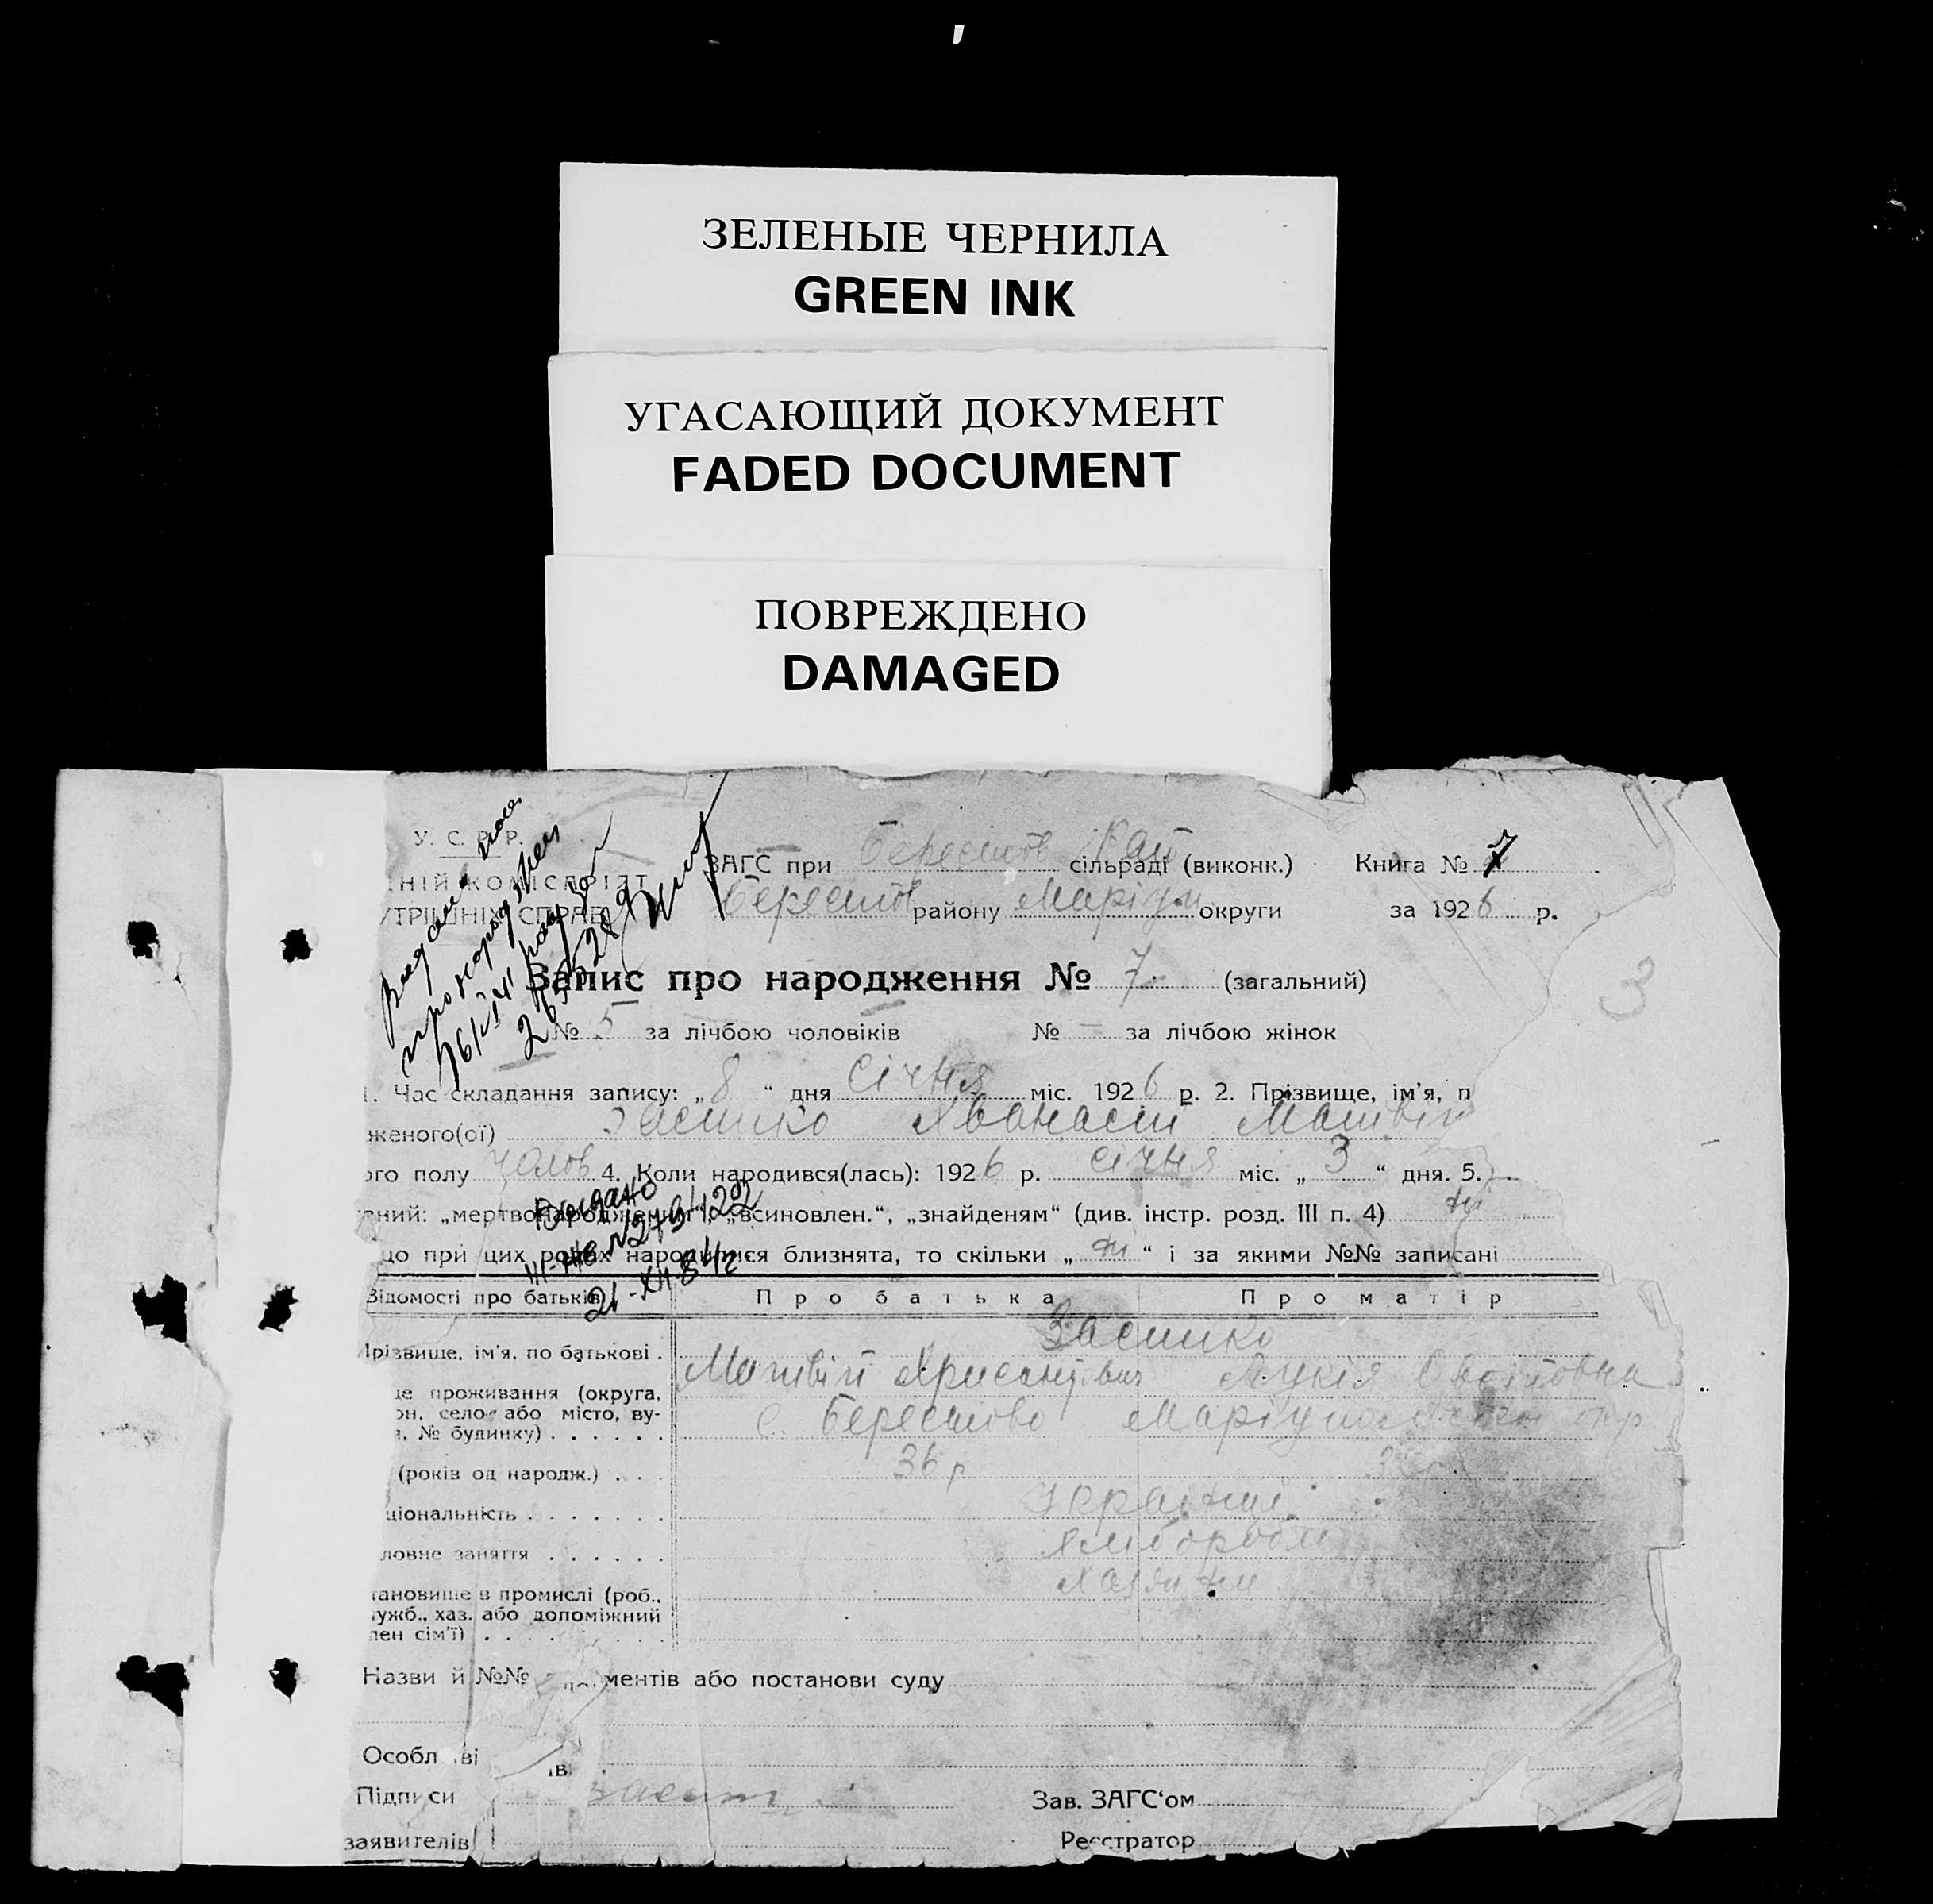 ЗЕЛЕНЫЕ ЧЕРНИЛА
GREEN INK
УГАСАЮЩИЙ ДОКУМЕНТ
FADED DOCUMENT
ПОВРЕЖДЕНО
DAMAGED
У. С. Р. Р.
ЗАГС при Берестов Рай сільраді (виконк.) Книга № 7
НІЙ КОМІСАРІЯТ
УТРІШНІХ СПРАВ Берестов району Маріуп округи за 1926 р.
Запис про народження № 7 (загальний)
3
№ 5 за лічбою чоловіків № — за лічбою жінок
1. Час складання запису: „8“ дня Січня міс. 1926 р. 2. Прізвище, ім'я, п
женого(ої) Засипко Афанасій Матвій
ого полу Чолов 4. Коли народився(лась): 1926 р. Січня міс. „3“ дня. 5.
аний: „мертвонароджений“, „всиновлен.“, „знайденям“ (див. інстр. розд. III п. 4) ні
що при цих родах народилися близнята, то скільки „ні“ і за якими №№ записані
Видано
21-XII-
Відомості про батьків Про батька Про матір
Засипко
Прізвище, ім'я, по батькові . Матвій Хрисантович Лукія
це проживання (округа,
он, село або місто, ву-
я, № будинку) . . . . . . с. Берестово Маріупольської окр
(років од народж.) . . . 36 р
ціональність . . . . . . . Українці
ловне заняття . . . . . . Хлібороби
тановище в промислі (роб.,
ужб., хаз. або допоміжний
лен сім'ї) . . . . . . . . . Хазяини
Назви й №№ документів або постанови суду
Особл ві ів
Підписи Засип
Зав. ЗАГС'ом
заявителів Реєстратор